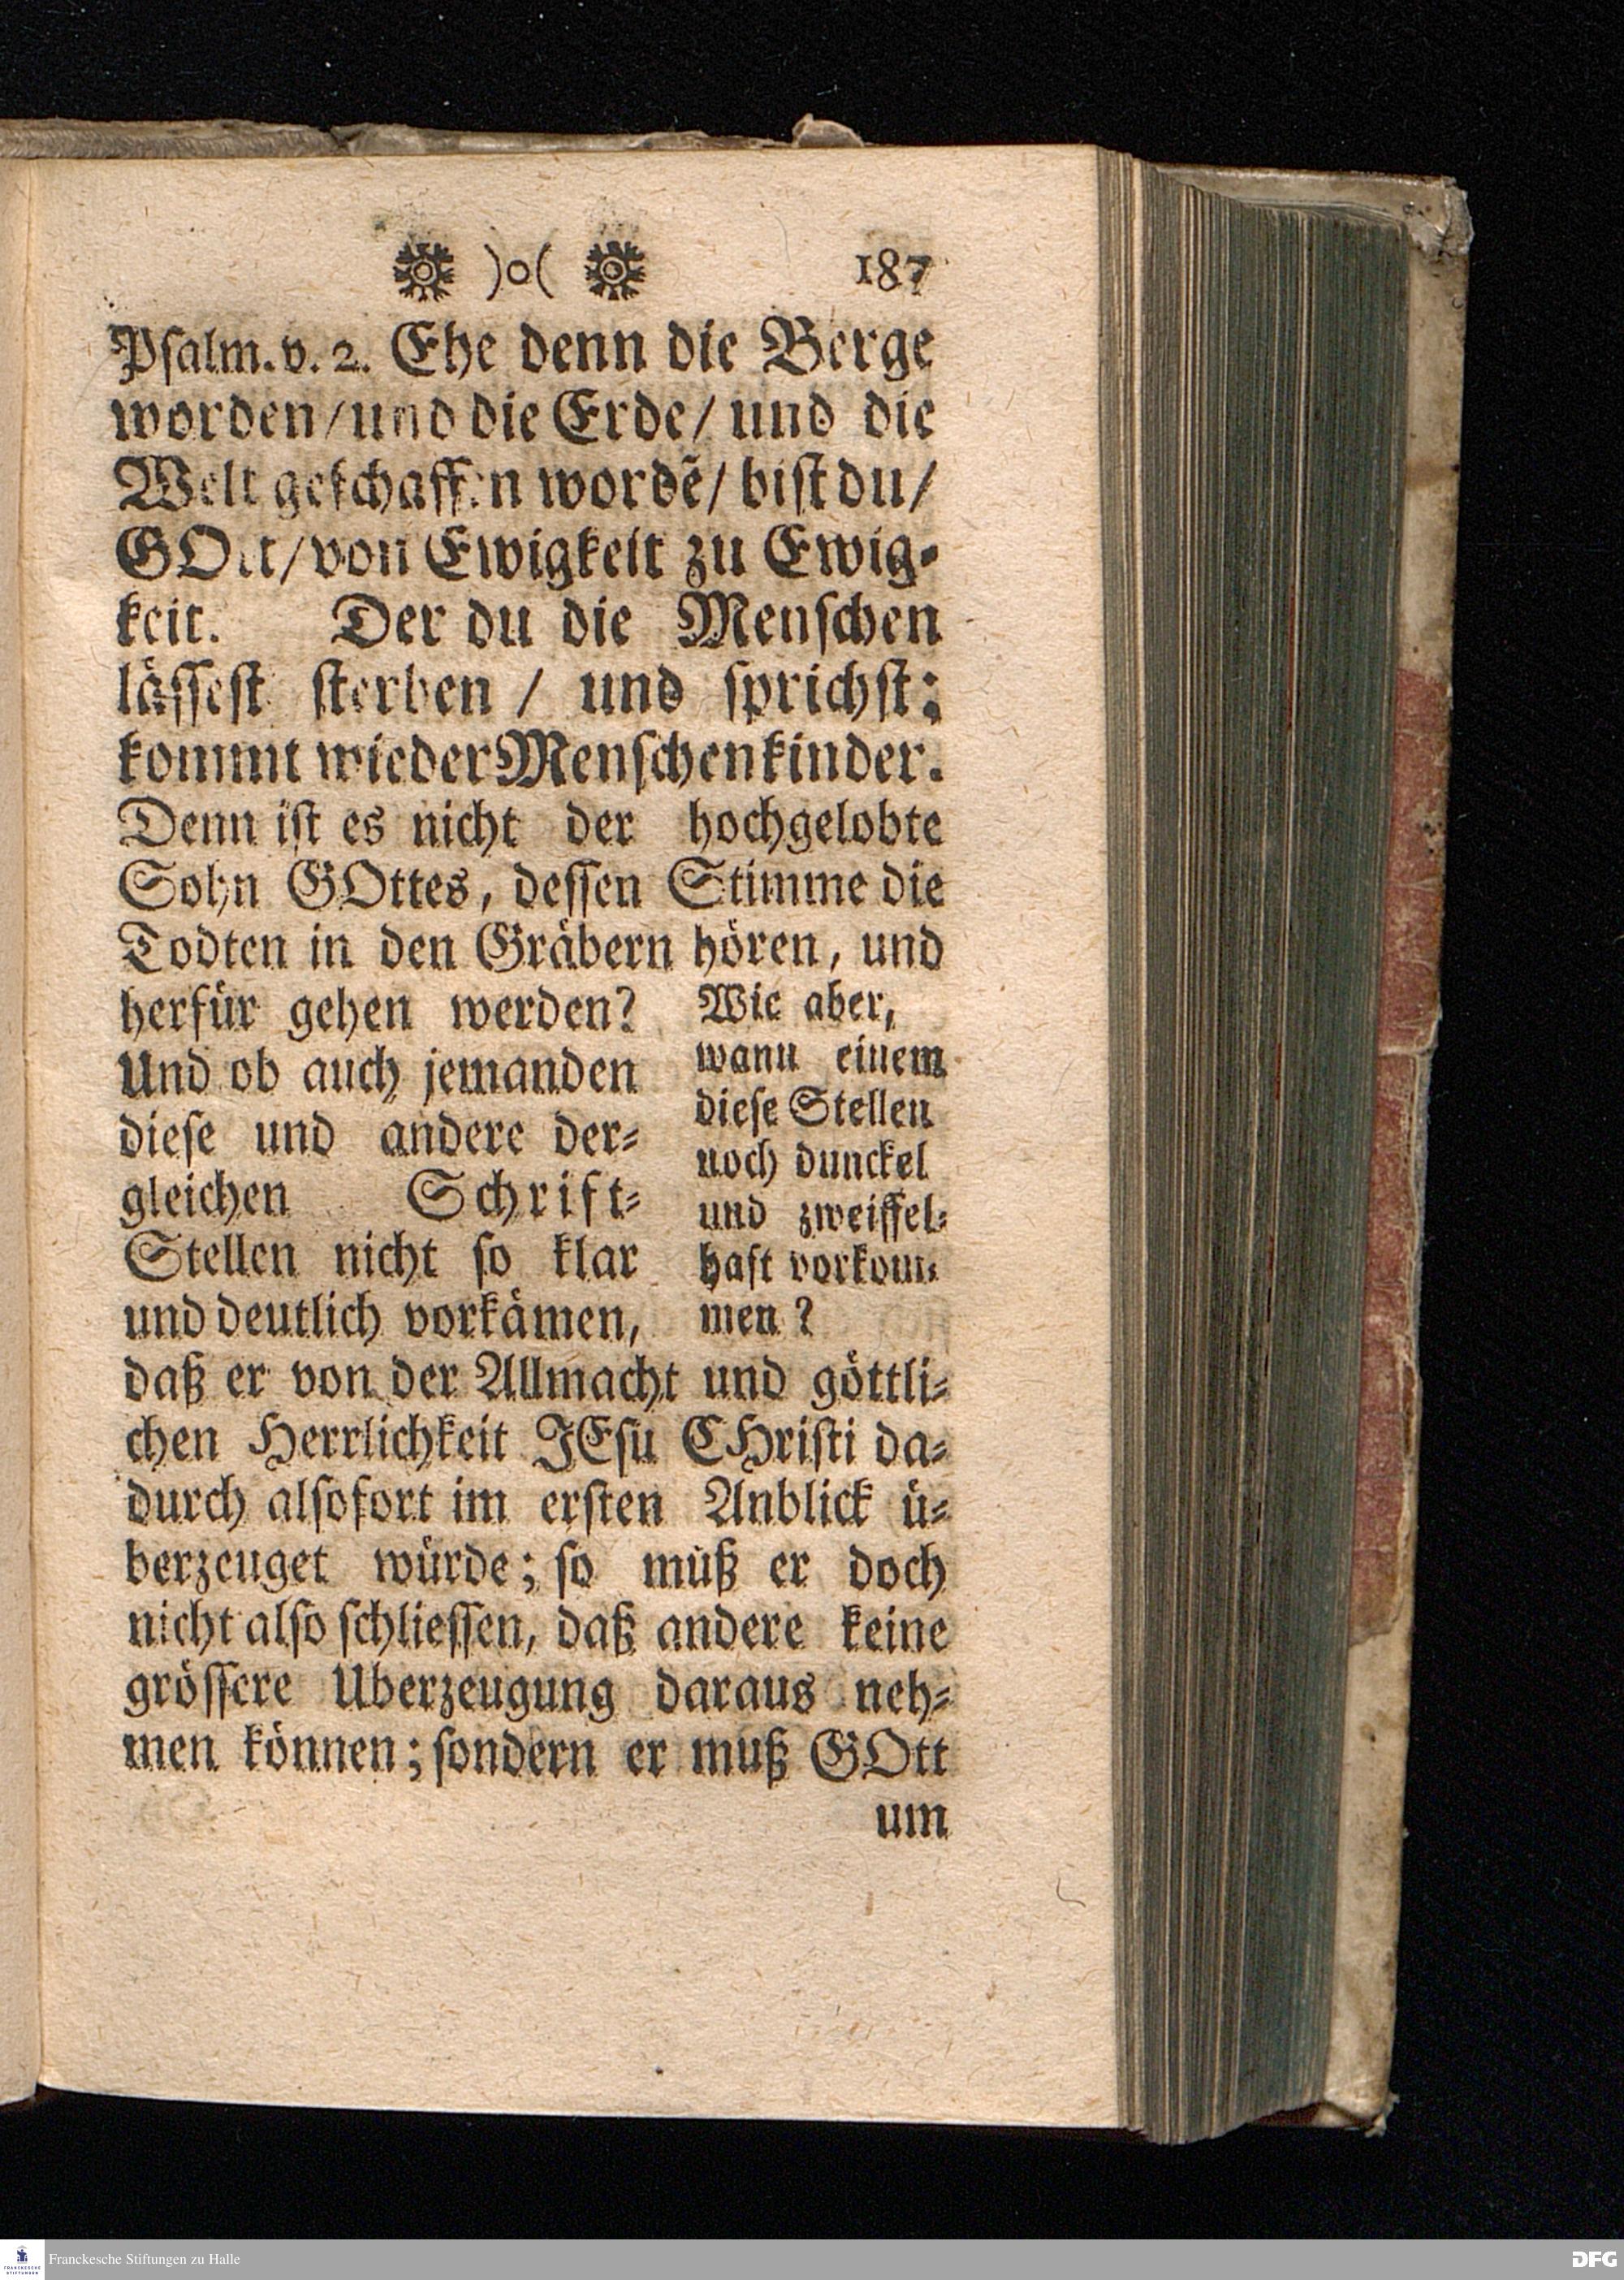 )o( 187
Psalm. v. 2. Ehe denn die Berge
worden/und die Erde/ und die
Welt geschaffen wordē/ bist du/
GOtt/von Ewigkeit zu Ewig-
keit. Der du die Menschen
lässest sterben / und sprichst:
kommt wieder Menschenkinder.
Denn ist es nicht der hochgelobte
Sohn GOttes, dessen Stimme die
Todten in den Gräbern hören, und
herfür gehen werden?
Und ob auch jemanden
diese und andere der-
gleichen Schrift-
Stellen nicht so klar
und deutlich vorkämen,
Wie aber,
wann einem
diese Stellen
noch dunckel
und zweiffel-
haft vorkom-
men ?
daß er von der Allmacht und göttli-
chen Herrlichkeit JEsu CHristi da-
durch alsofort im ersten Anblick ü-
berzeuget würde; so müß er doch
nicht also schliessen, daß andere keine
grössere Uberzeugung daraus neh-
men können; sondern er muß GOtt
um
FRANCKESCHE STIFTUNGEN
Franckesche Stiftungen zu Halle
DFG